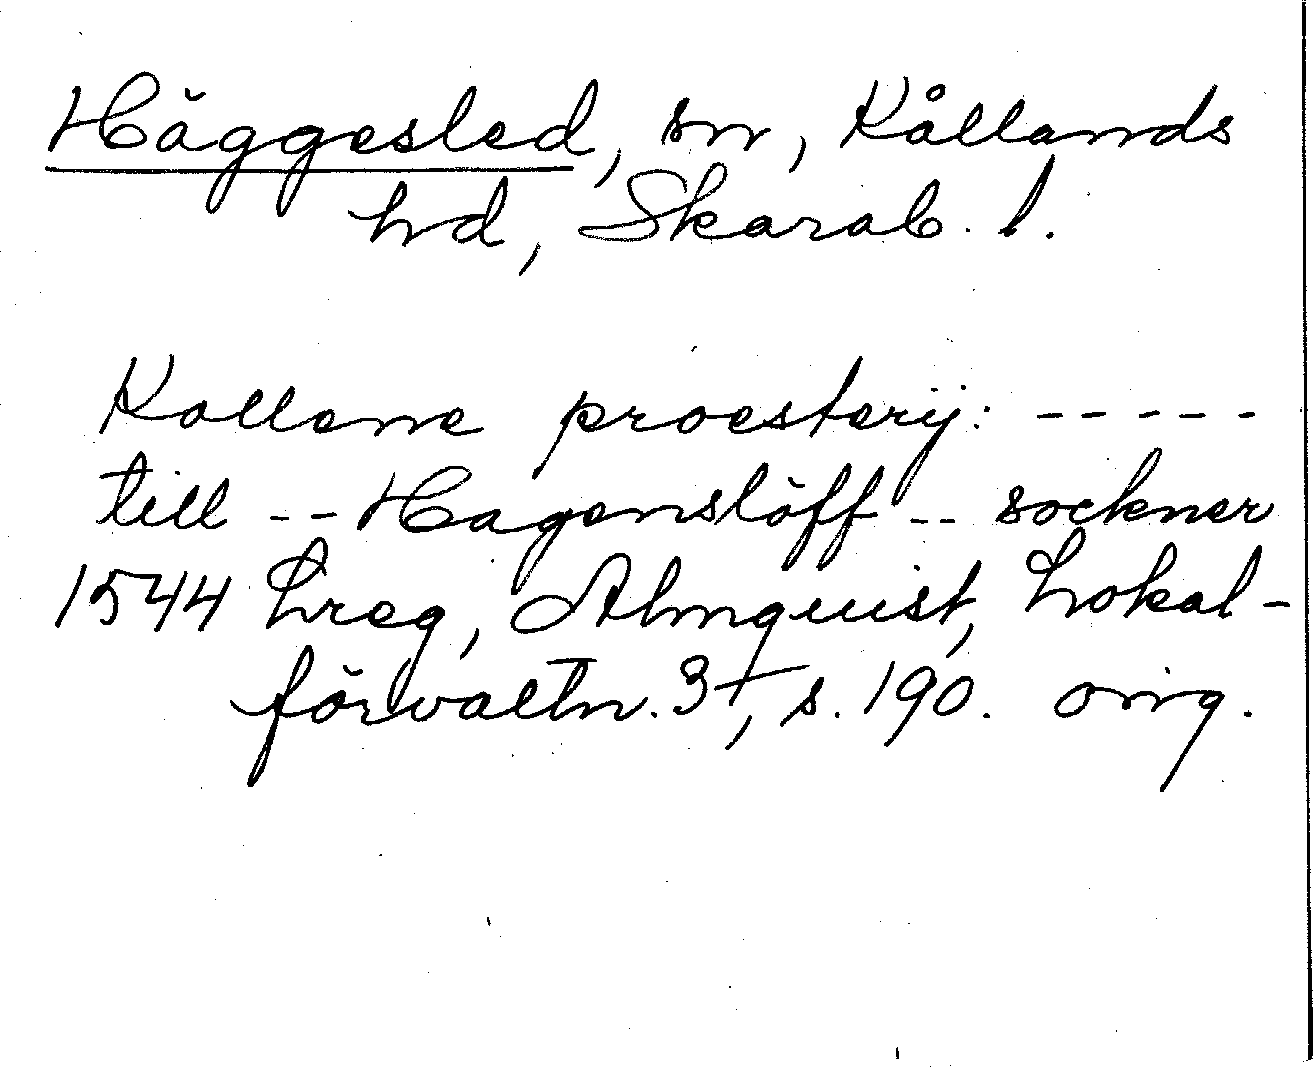 Häggesled, sn, Kållands
hd, Skarab. l.
Kollene proesterij: -----
till -- Hagenslöff -- sockner
1544 hreg, Almquist, Lokal-
förvaltn. 3 †, s. 190. orig.